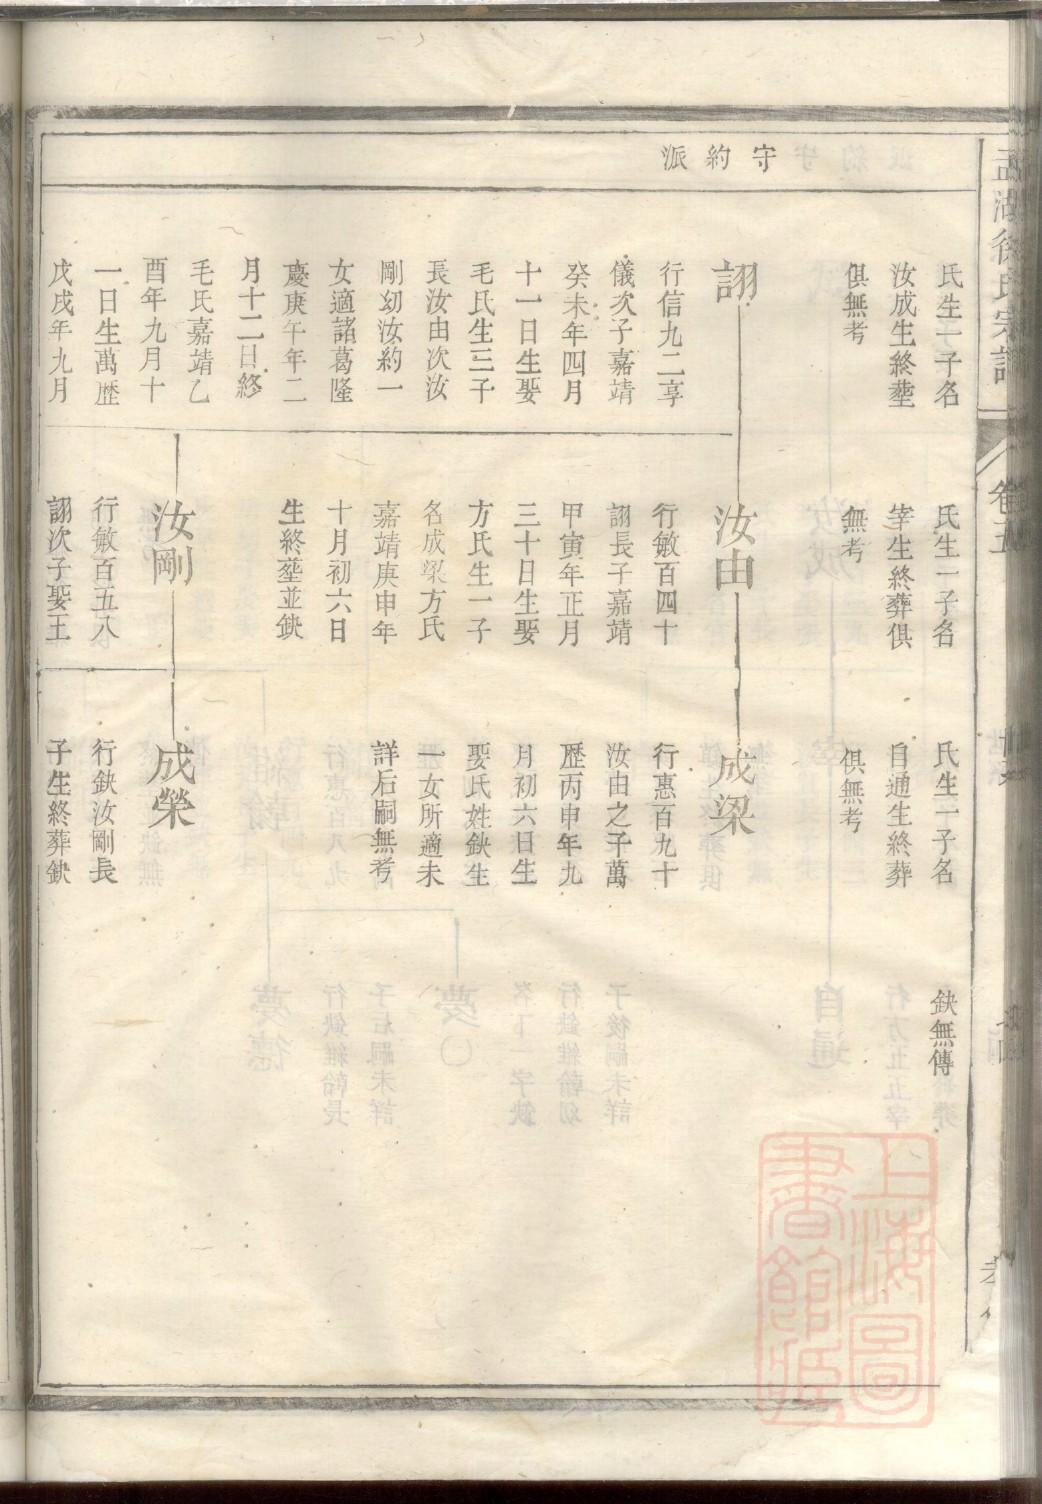 孟湖徐氏宗譜
卷五
守約派
氏生一子名
汝成生終塟
俱無考
詡
行信九二享
儀次子嘉靖
癸未年四月
十一日生娶
毛氏生三子
長汝由次汝
剛幼汝約一
女適諸葛隆
慶庚午年二
月十二日終
毛氏嘉靖乙
酉年九月十
一日生萬歴
戊戌年九月
氏生一子名
宰生終葬俱
無考
汝由
行敏百四十
詡長子嘉靖
甲寅年正月
三十日生娶
方氏生一子
名成梁方氏
嘉靖庚申年
十月初六日
生終塟並鈌
汝剛
行敏百五八
詡次子娶王
氏生一子名
自通生終葬
俱無考
成梁
行惠百九十
汝由之子萬
歴丙申年九
月初六日生
娶氏姓鈌生
一女所適未
詳后嗣無考
成榮
行鈌汝剛長
子生終葬鈌
鈌無傳
上海圖書館藏